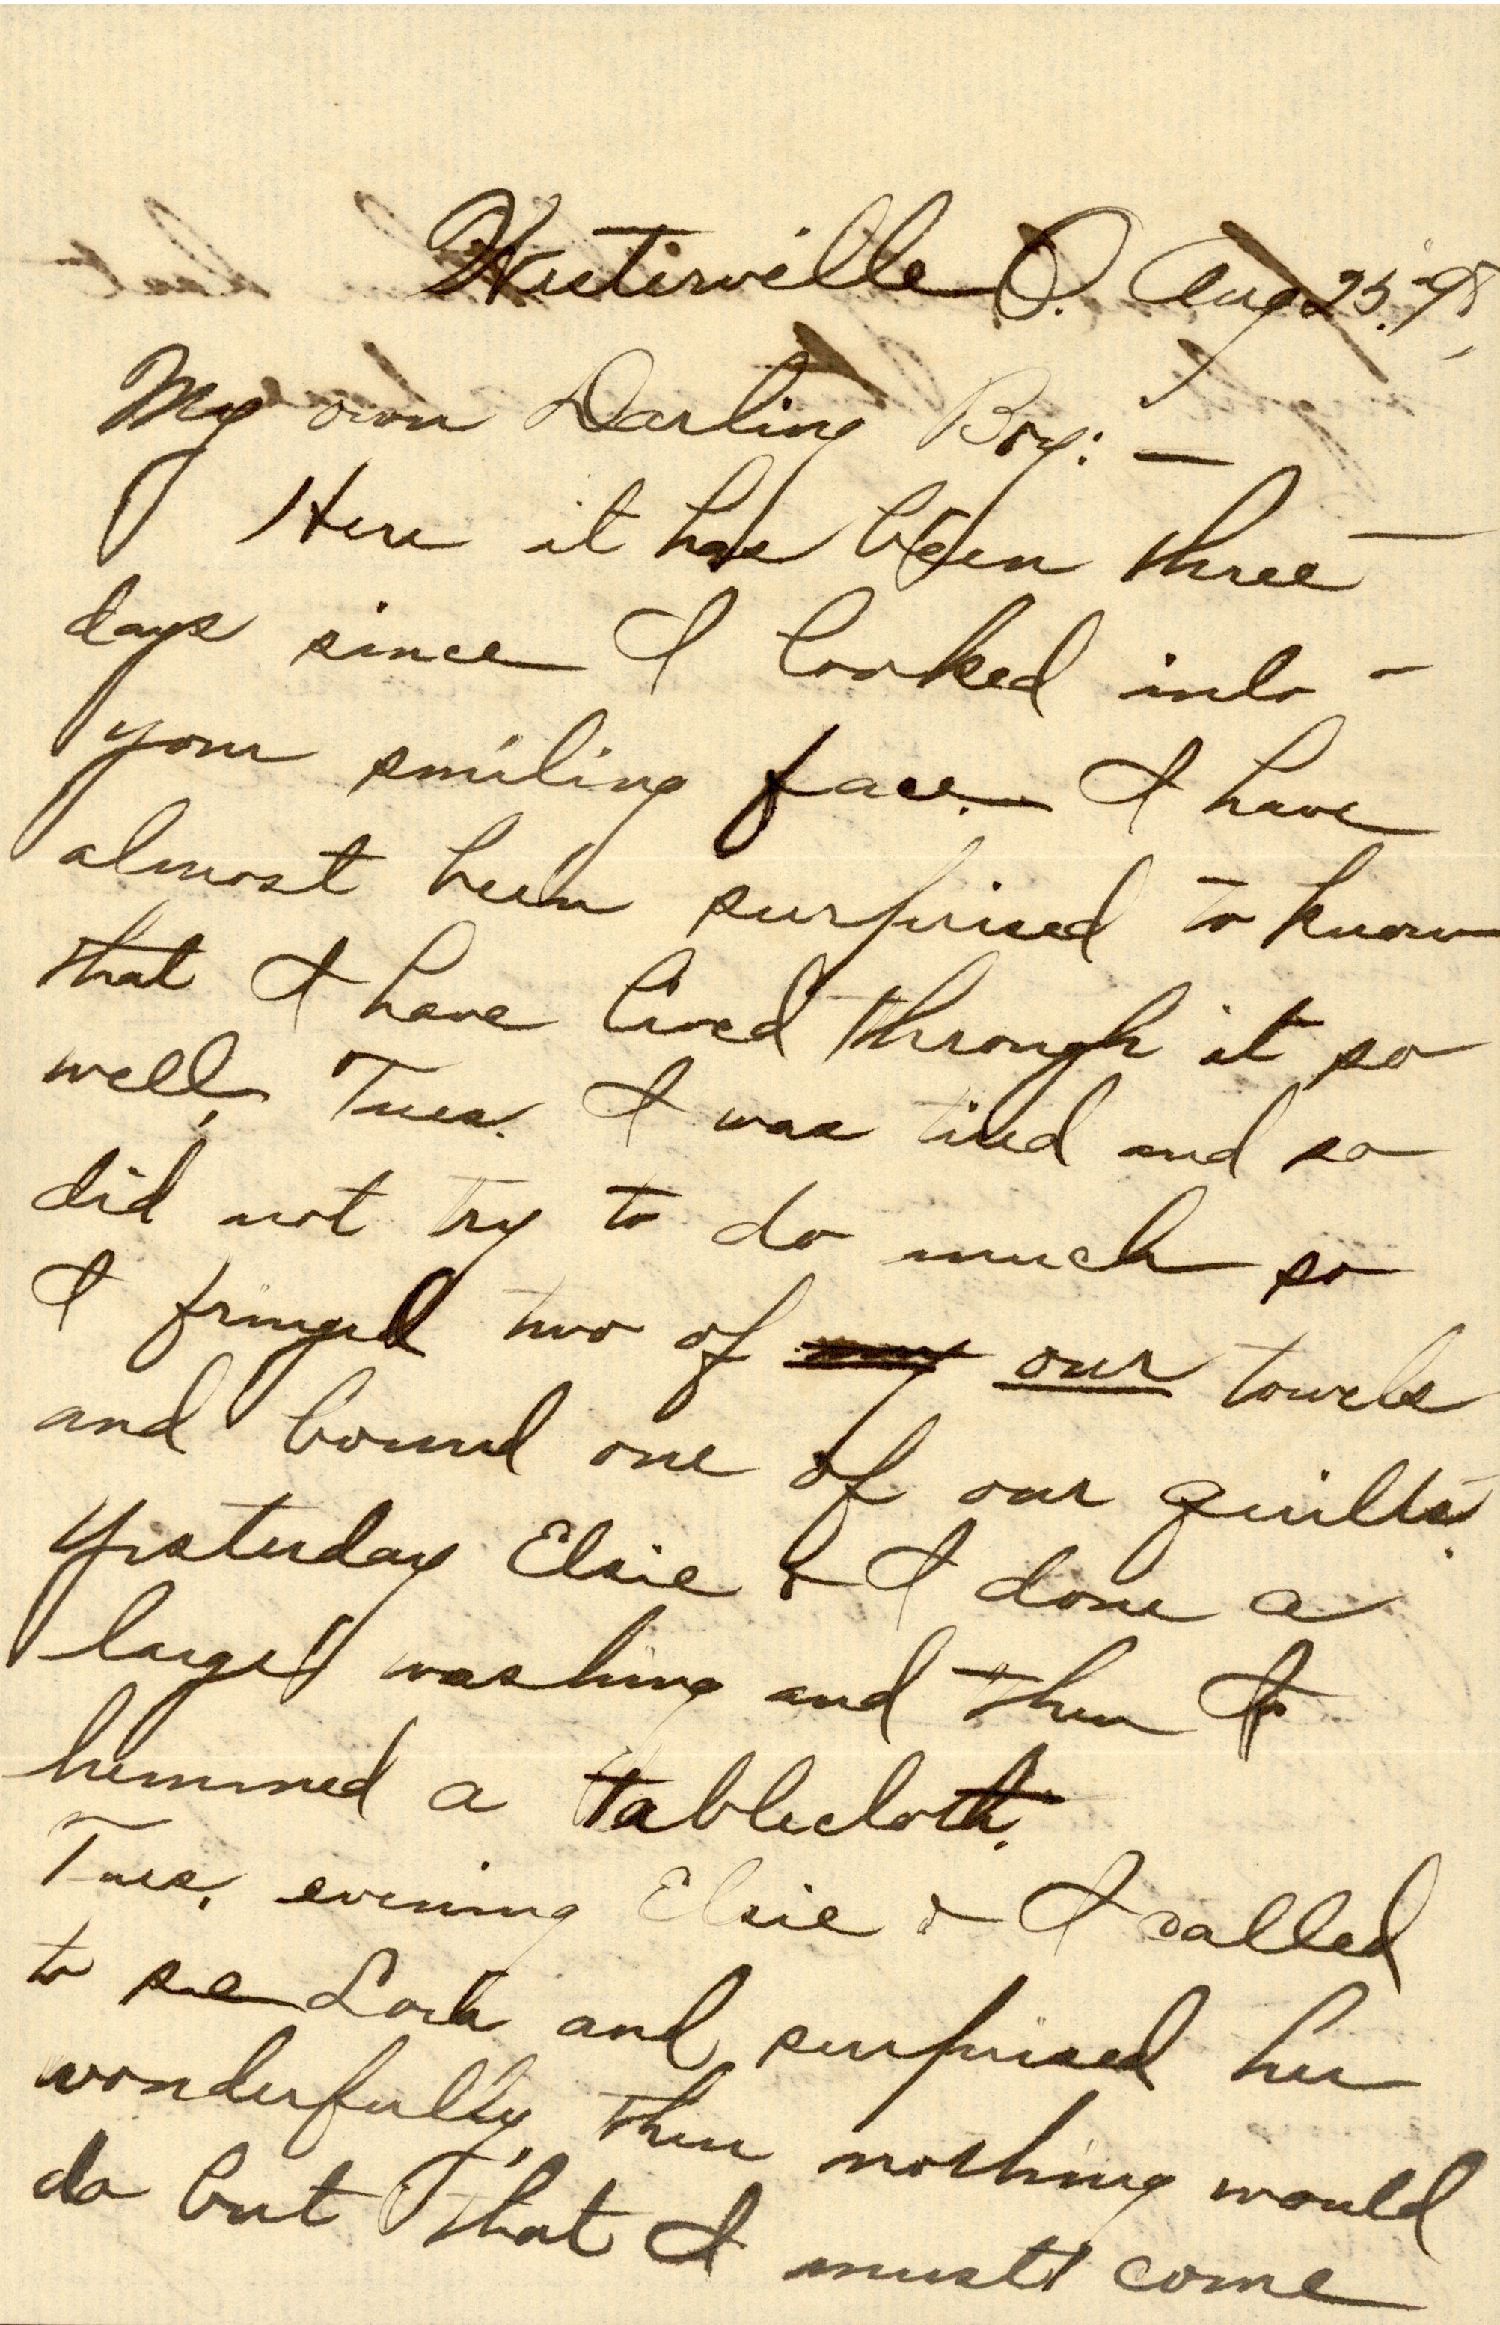 Westerville O. Aug 25. '98,
My own Darling Boy: —
Here it has been three
days since I looked into
your smiling face. I have
almost been surprised to know
that I have lived through it so
well, Tues. I was tired and so
did not try to do much so
I fringed two of my our towels
and bound one of our quilts.
Yesterday Elsie & I done a
large washing and then I
hemmed a tablecloth.
Tues. evening Elsie & I called
to see Lora and surprised her
wonderfully, then nothing would
do but that I must come